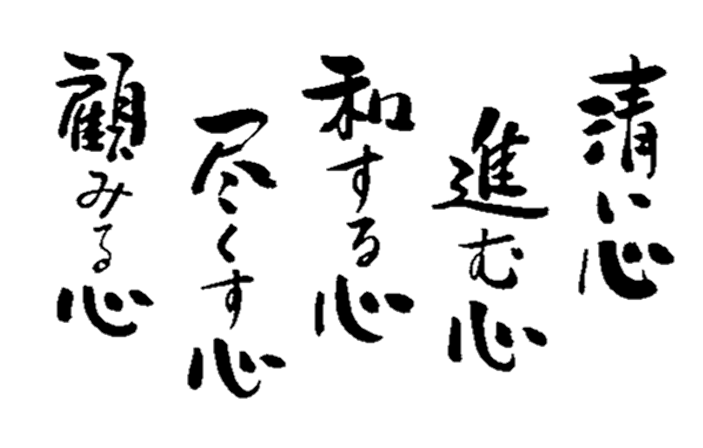 清い心
進む心
和する心
尽くす心
顧みる心